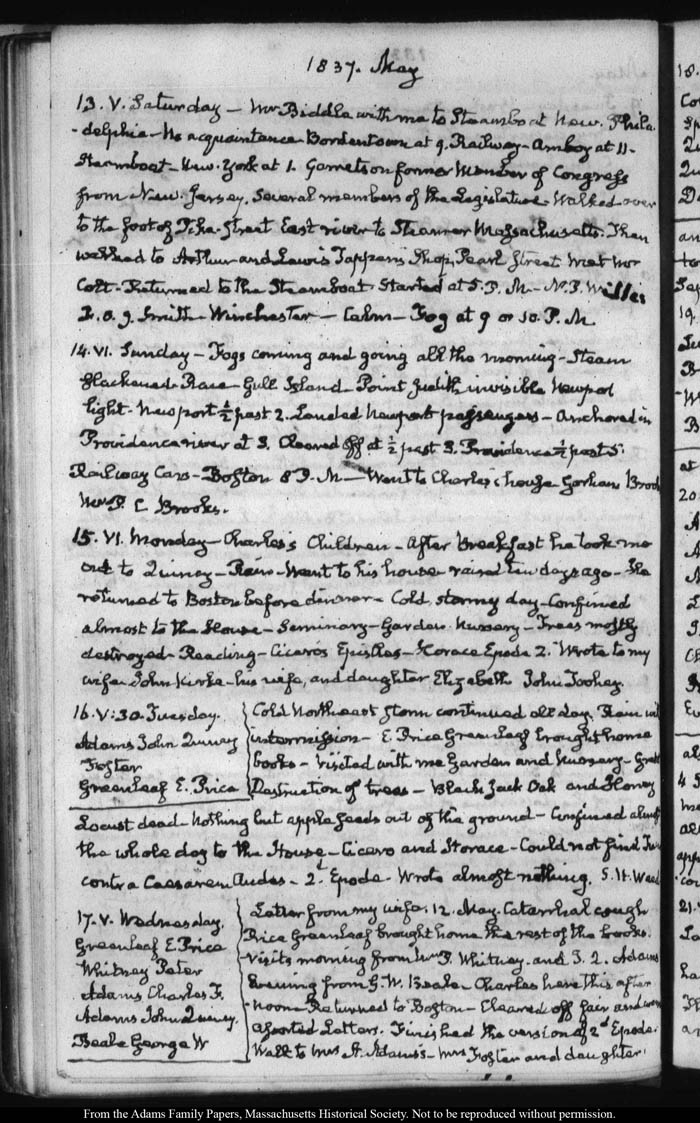 1837. May
13. V. Saturday – Mr Biddle with me to Steamboat New. Phila
-delphia – No acquaintance Bordentown at 9. Railway – Amboy at 11 –
Steamboat – New-York at 1. Garnetson former Member of Congress
from New-Jersey. Several members of the Legislature – Walked over
to the foot of Pike-Street East river to Steamer Massachusetts. Then
walked to Arthur and Lewis Tappan's Shop, Pearl Street met Mr
Colt – Returned to the Steamboat. Started at 5. P.M – N. P. Willis
F. O. J. Smith – Winchester – Calm – Fog at 9 or 10. P. M
14. VI. Sunday – Fogs coming and going all the morning – Steam
slackened – Race – Gull Island – Point Judith invisible Newport
light – Newport ½ past 2. Landed Newport passengers – anchored in
Providence river at 3. Cleared off at ½ past 3. Providence ½ past 5.
Railway Cars – Boston 8 P. M – Went to Charles's house Gorham Brook
Mr P. C Brooks.
15. VI. Monday – Charles's Children – After breakfast he took me
out to Quincy – Rain – Went to his house raised ten days ago – He
returned to Boston before dinner – Cold, stormy day – Confined
almost to the House – Seminary – Garden – Nursery – Trees mostly
destroyed – Reading – Cicero's Epistles – Horace Epode 2. Wrote to my
wife. John Kirke – his wife, and daughter Elizabeth John Toohey.
16. V:30. Tuesday.
Adams John Quincy
Foster
Greenleaf E. Price
Cold Northeast storm continued all day. Rain
intermission – E Price Greenleaf brought home
books – Visited with me Garden and Nursery – Great
Destruction of trees – Black Jack Oak and Honey
Locust dead – Nothing but apple seeds out of the ground – Confined almost
the whole day to the House – Cicero and Horace – Could not find
contra Caesarem Audes – 2d Epode – Wrote almost nothing. S. H.
17. V. Wednesday.
Greenleaf E. Price
Whitney Peter
Adams Charles F.
Adams John Quincy.
Beale George W
Letter from my wife. 12. May. Catarrhal cough
Price Greenleaf brought home the rest of the books.
Visits morning from Mr P. Whitney. and J. Q. Adams
Evening from G. W. Beale – Charles here this after
-noon Returned to Boston – Cleared off fair and
assorted Letters. Finished the version of 2d Epode.
Walk to Mrs A. Adams's – Mrs Foster and daughter.
From the Adams Family Papers, Massachusetts Historical Society. Not to be reproduced without permission.